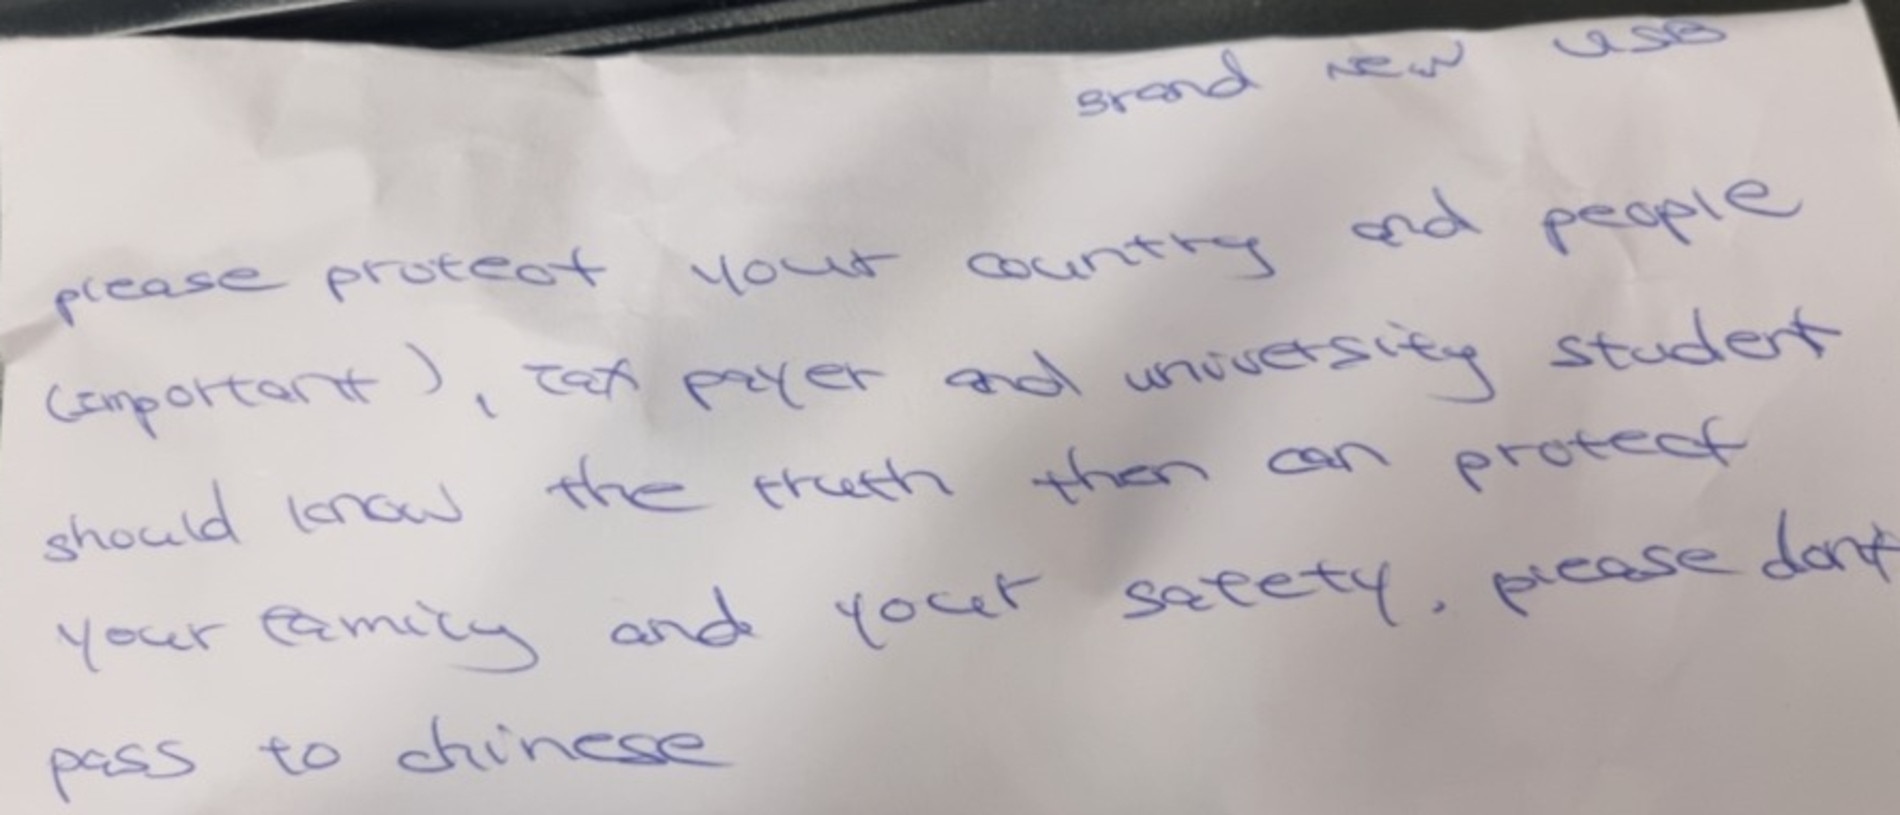 Brand New USB
please protect your country and people
(important), tax payer and university student
should know the truth then can protect
your family and your safety. please dont
pass to chinese